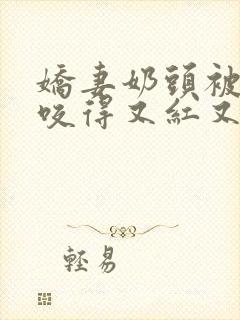 嬌妻奶頭被
咬得又紅又
輕易